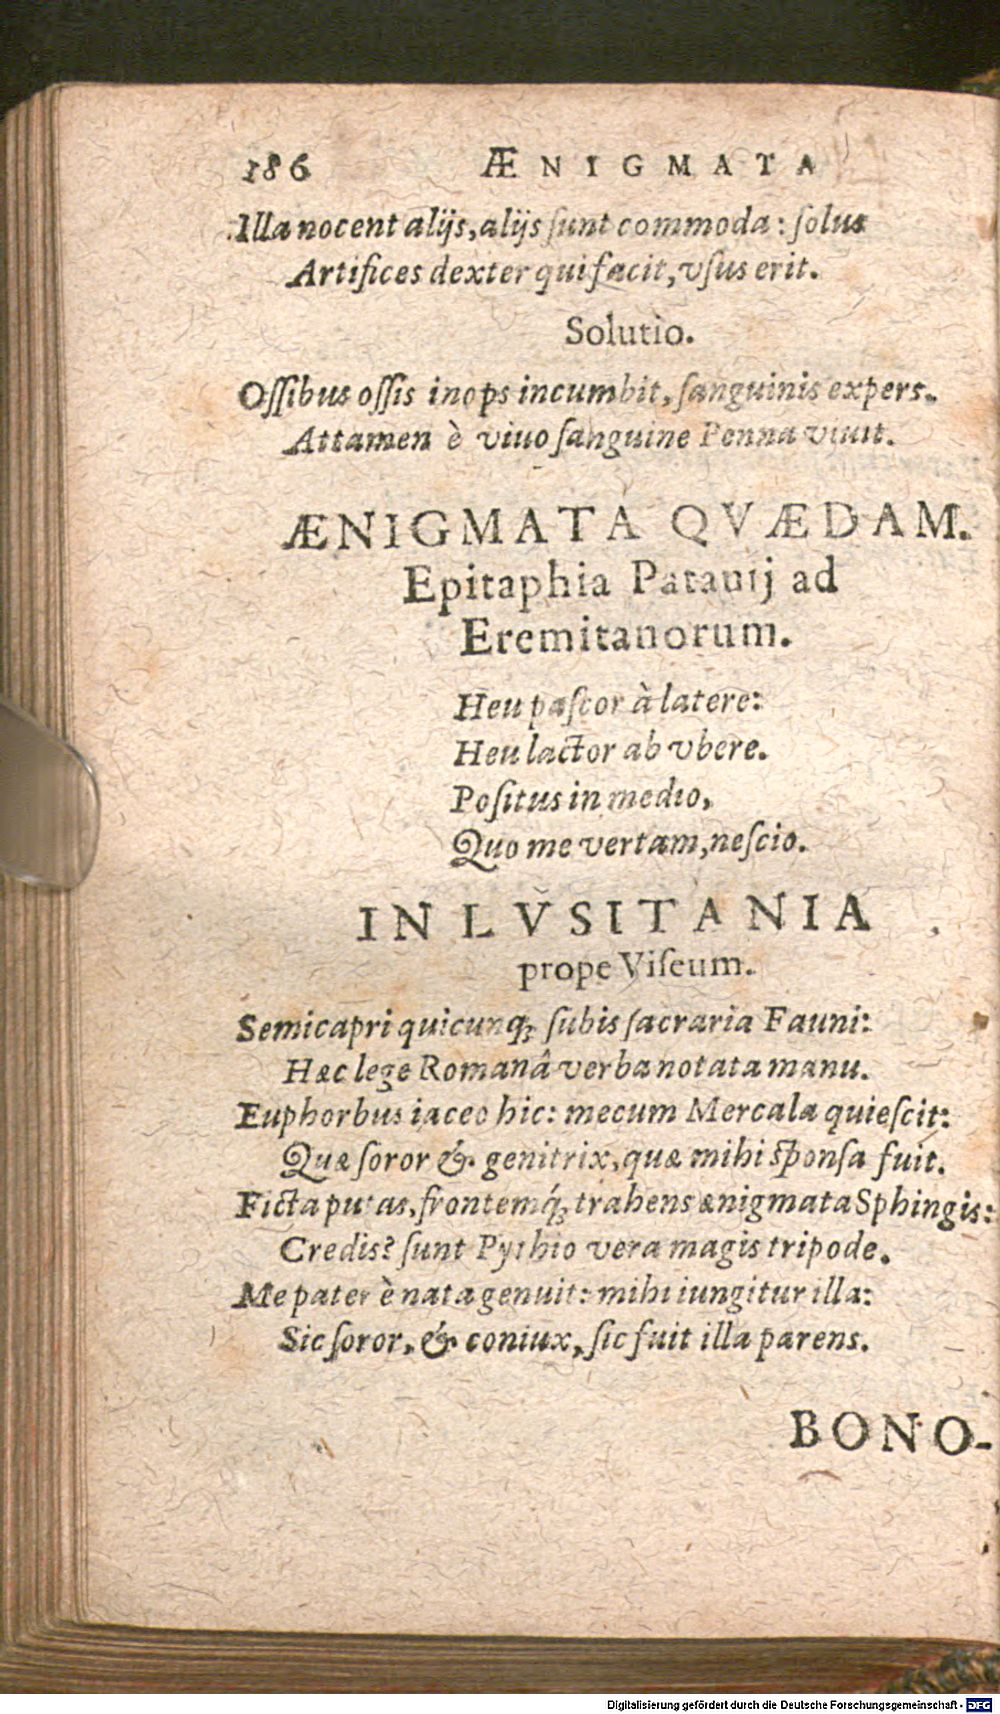 186 ÆNIGMATA
Illa nocent alijs, alijs ſunt commoda: ſolus
Artifices dexter qui facit, vſus erit.
Solutio.
Oſſibus oſſis inops incumbit, ſanguinis expers.
Attamen è viuo ſanguine Penna viuit.
ÆNIGMATA QVÆDAM.
Epitaphia Patauij ad
Eremitanorum.
Heu paſcor à latere:
Heu lactor ab vbere.
Poſitus in medio,
Quo me vertam, neſcio.
IN LVSITANIA
prope Viſeum.
Semicapri quicunq; ſubis ſacraria Fauni:
Hæc lege Romanâ verba notata manu.
Euphorbus iaceo hic: mecum Mercala quieſcit:
Quæ ſoror & genitrix, quæ mihi ſponſa fuit.
Ficta putas, frontemq́; trahens ænigmata Sphingis:
Credis? ſunt Pythio vera magis tripode.
Me pater è nata genuit: mihi iungitur illa:
Sic ſoror, & coniux, ſic fuit illa parens.
BONO-
Digitalisierung gefördert durch die Deutsche Forschungsgemeinschaft - DFG